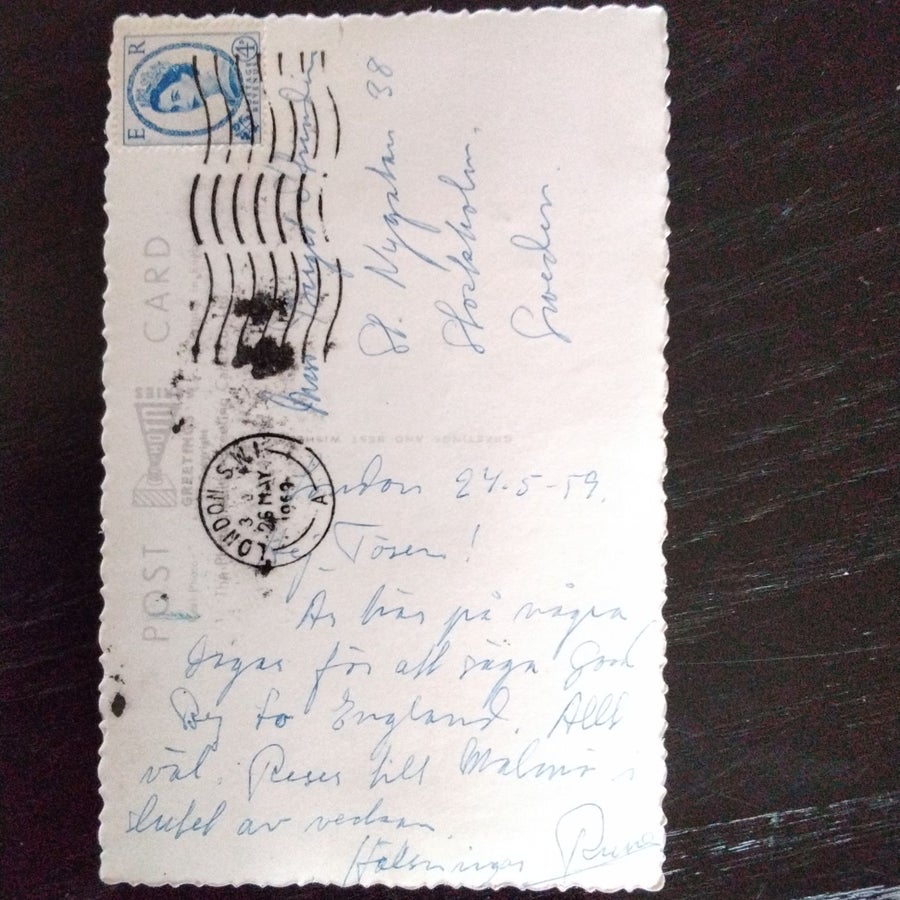 E R
4D
POSTAGE REVENUE
POST CARD
GREETINGS
LONDON S.W.1.
26 MAY
1959
A
Miss
St. Nygatan 38
Stockholm,
Sweden.
London 24-5-59.
Hej, Tösen!
Är här på några
dagar för att säga Good
Bey to England. Allt
väl. Reser till Malmö i
slutet av veckan.
Hälsningar Rune